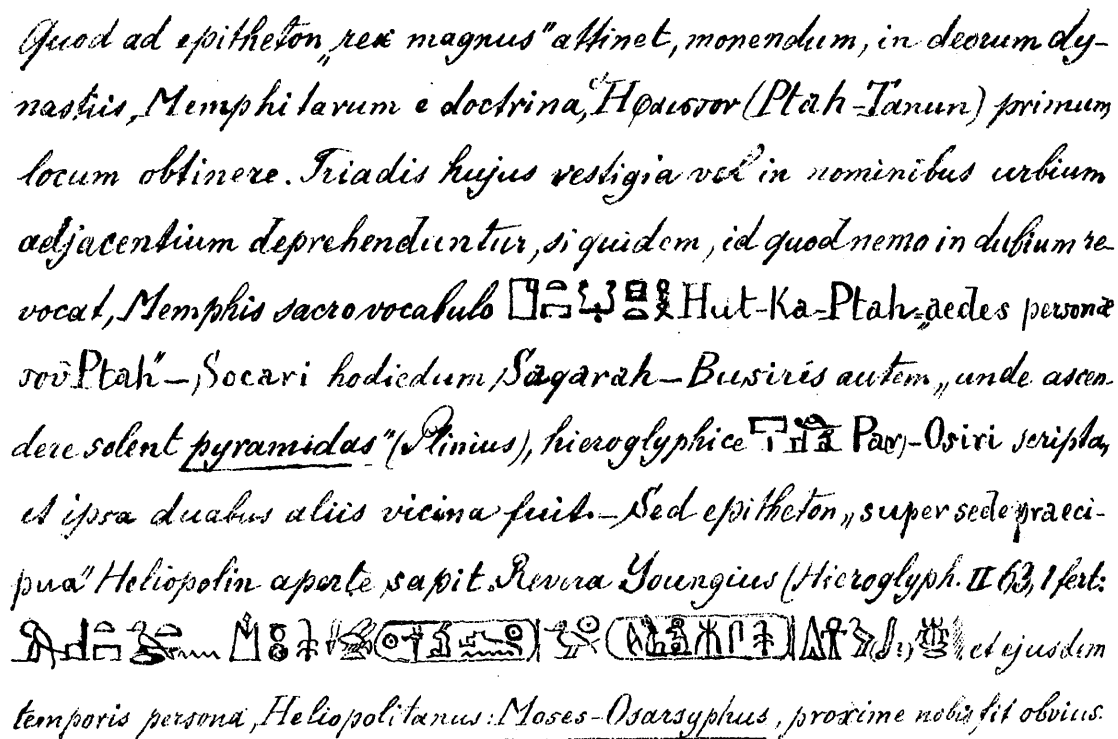 Quod ad epitheton „rex magnus" attinet, monendum, in deorum dy-
nastiis, Memphitarum e doctrina, Ἡφαιστον (Ptah-Tanun) primum
locum obtinere. Triadis hujus vestigia vel in nominibus urbium
adjacentium deprehenduntur, siquidem, id quod nemo in dubium re-
vocat, Memphis sacro vocabulo Hut-Ka-Ptah „aedes personæ
τοῦ Ptah" – Socari hodiedum Saqarah – Busiris autem „unde ascen-
dere solent pyramidas" (Plinius), hieroglyphice Pa(r)-Osiri scripta,
et ipsa duabus aliis vicina fuit. – Sed epitheton „super sede praeci-
pua" Heliopolin aperte sapit. Revera Youngius (Hieroglyph. II 63, 1 fert:
et ejusdem
temporis persona, Heliopolitanus: Moses-Osarsyphus, proxime nobis fit obvius.